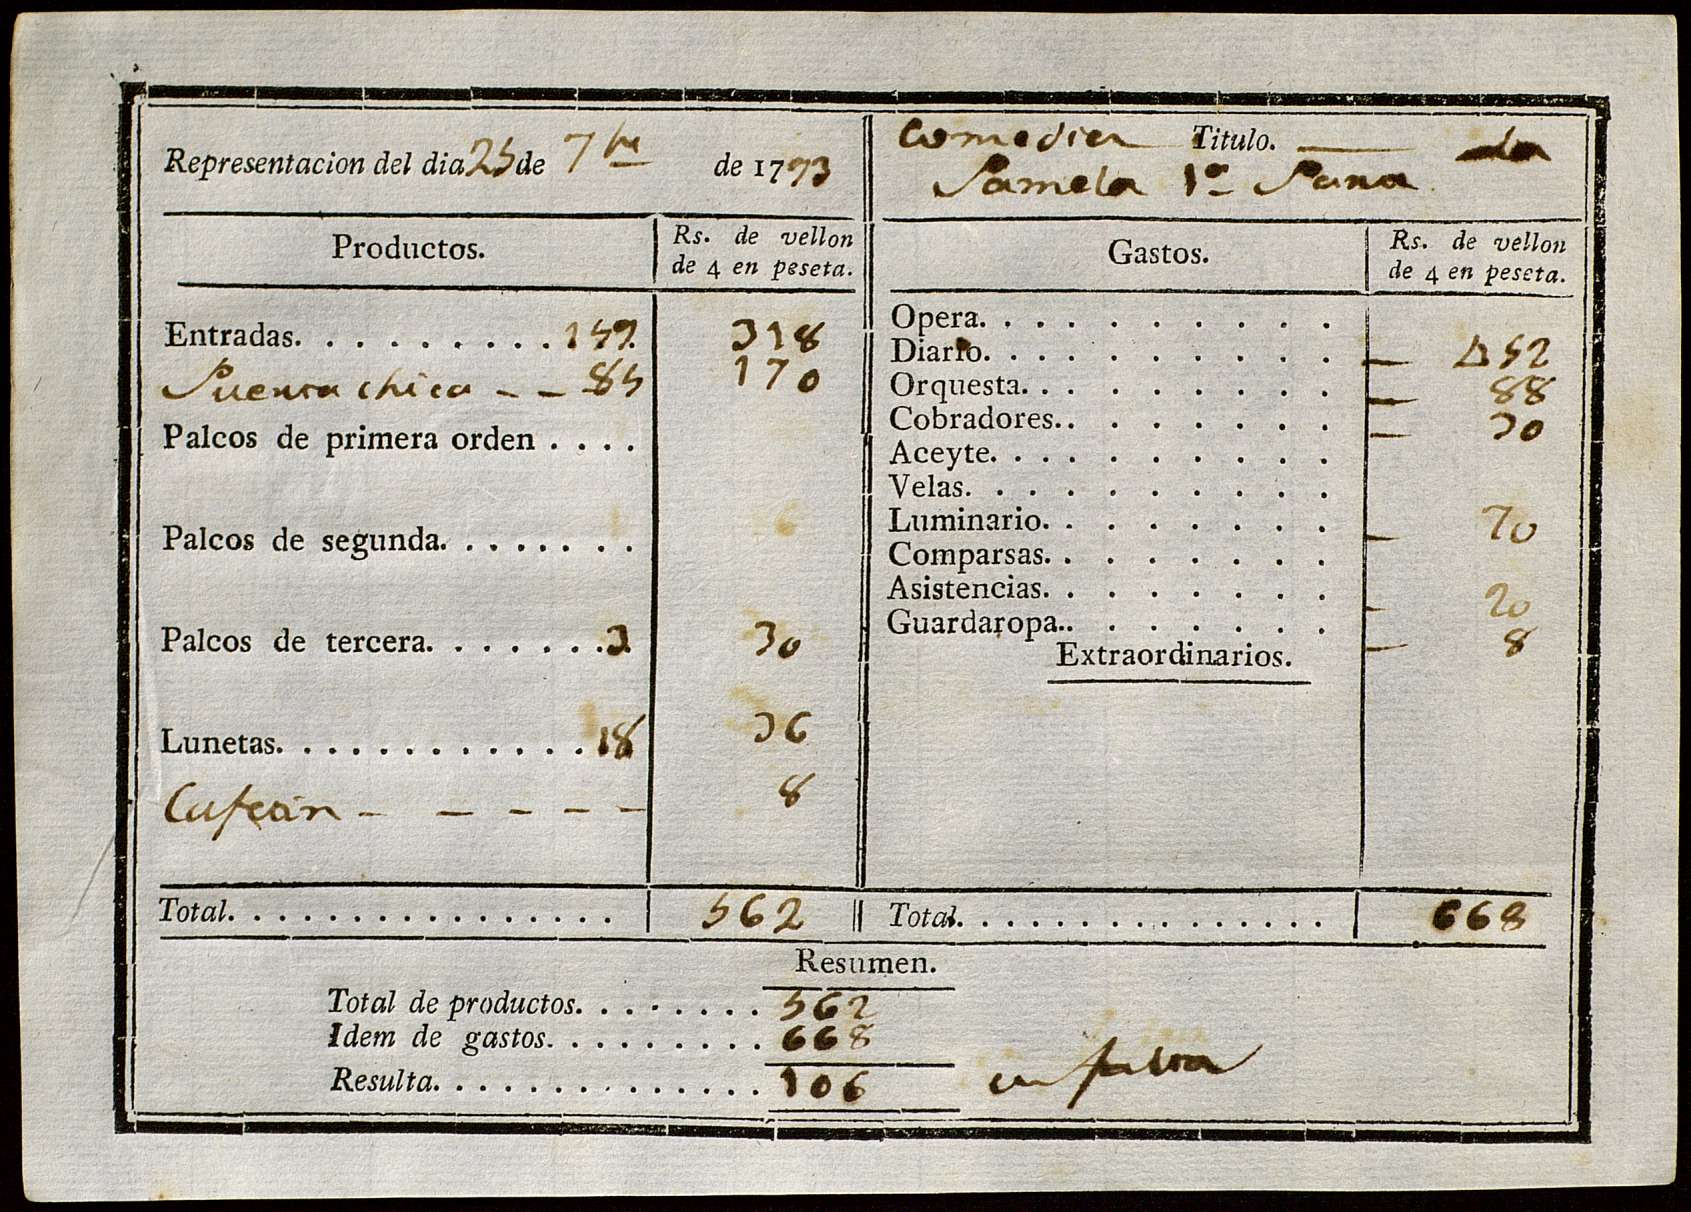 Representacion del dia 25 de 7bre de 1793
Comedia Titulo. — La
Pamela 1ª Parte
Productos.
Rs. de vellon
de 4 en peseta.
Gastos.
Rs. de vellon
de 4 en peseta.
Entradas. . . . . . . . . . 159. 318
Puerta chica - - 85 170
Palcos de primera orden . . . .
Palcos de segunda. . . . . . . .
Palcos de tercera. . . . . . . . 3. 30
Lunetas. . . . . . . . . . . . . 18 36
- - - - - 8
Total. . . . . . . . . . . . . . . . 562
Opera. . . . . . . . . .
Diario. . . . . . . . . . — 452
Orquesta. . . . . . . . . — 88
Cobradores.. . . . . . . — 30
Aceyte. . . . . . . . . .
Velas. . . . . . . . . .
Luminario. . . . . . . . — 70
Comparsas. . . . . . . .
Asistencias. . . . . . . . — 20
Guardaropa.. . . . . . . — 8
Extraordinarios.
Total. . . . . . . . . . . . . . . 668
Resumen.
Total de productos. . . . . . . . 562
Idem de gastos. . . . . . . . . 668
Resulta. . . . . . . . . . . . . . 106 en falta